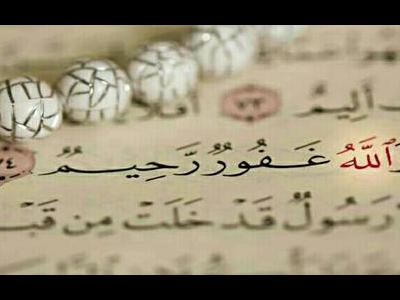 أَلِيمٌ ٧٣
وَٱللَّهُ غَفُورٌ رَّحِيمٌ ٧٤
رَسُولٌ قَدْ خَلَتْ مِن